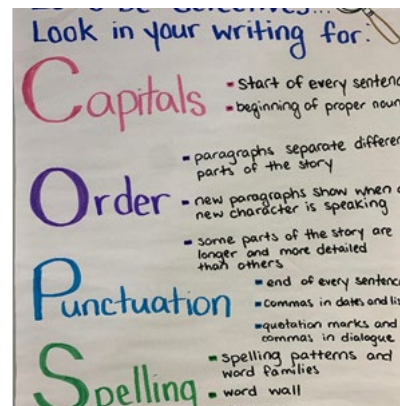 Look in your writing for:
Capitals
- start of every sentenc
- beginning of proper noun
Order
- paragraphs separate differe
parts of the story
- new paragraphs show when
new character is speaking
- some parts of the story are
longer and more detailed
than others
Punctuation
- end of every sentenc
- commas in dates and lis
- quotation marks and
commas in dialogue
Spelling
- spelling patterns and
word families
- word wall